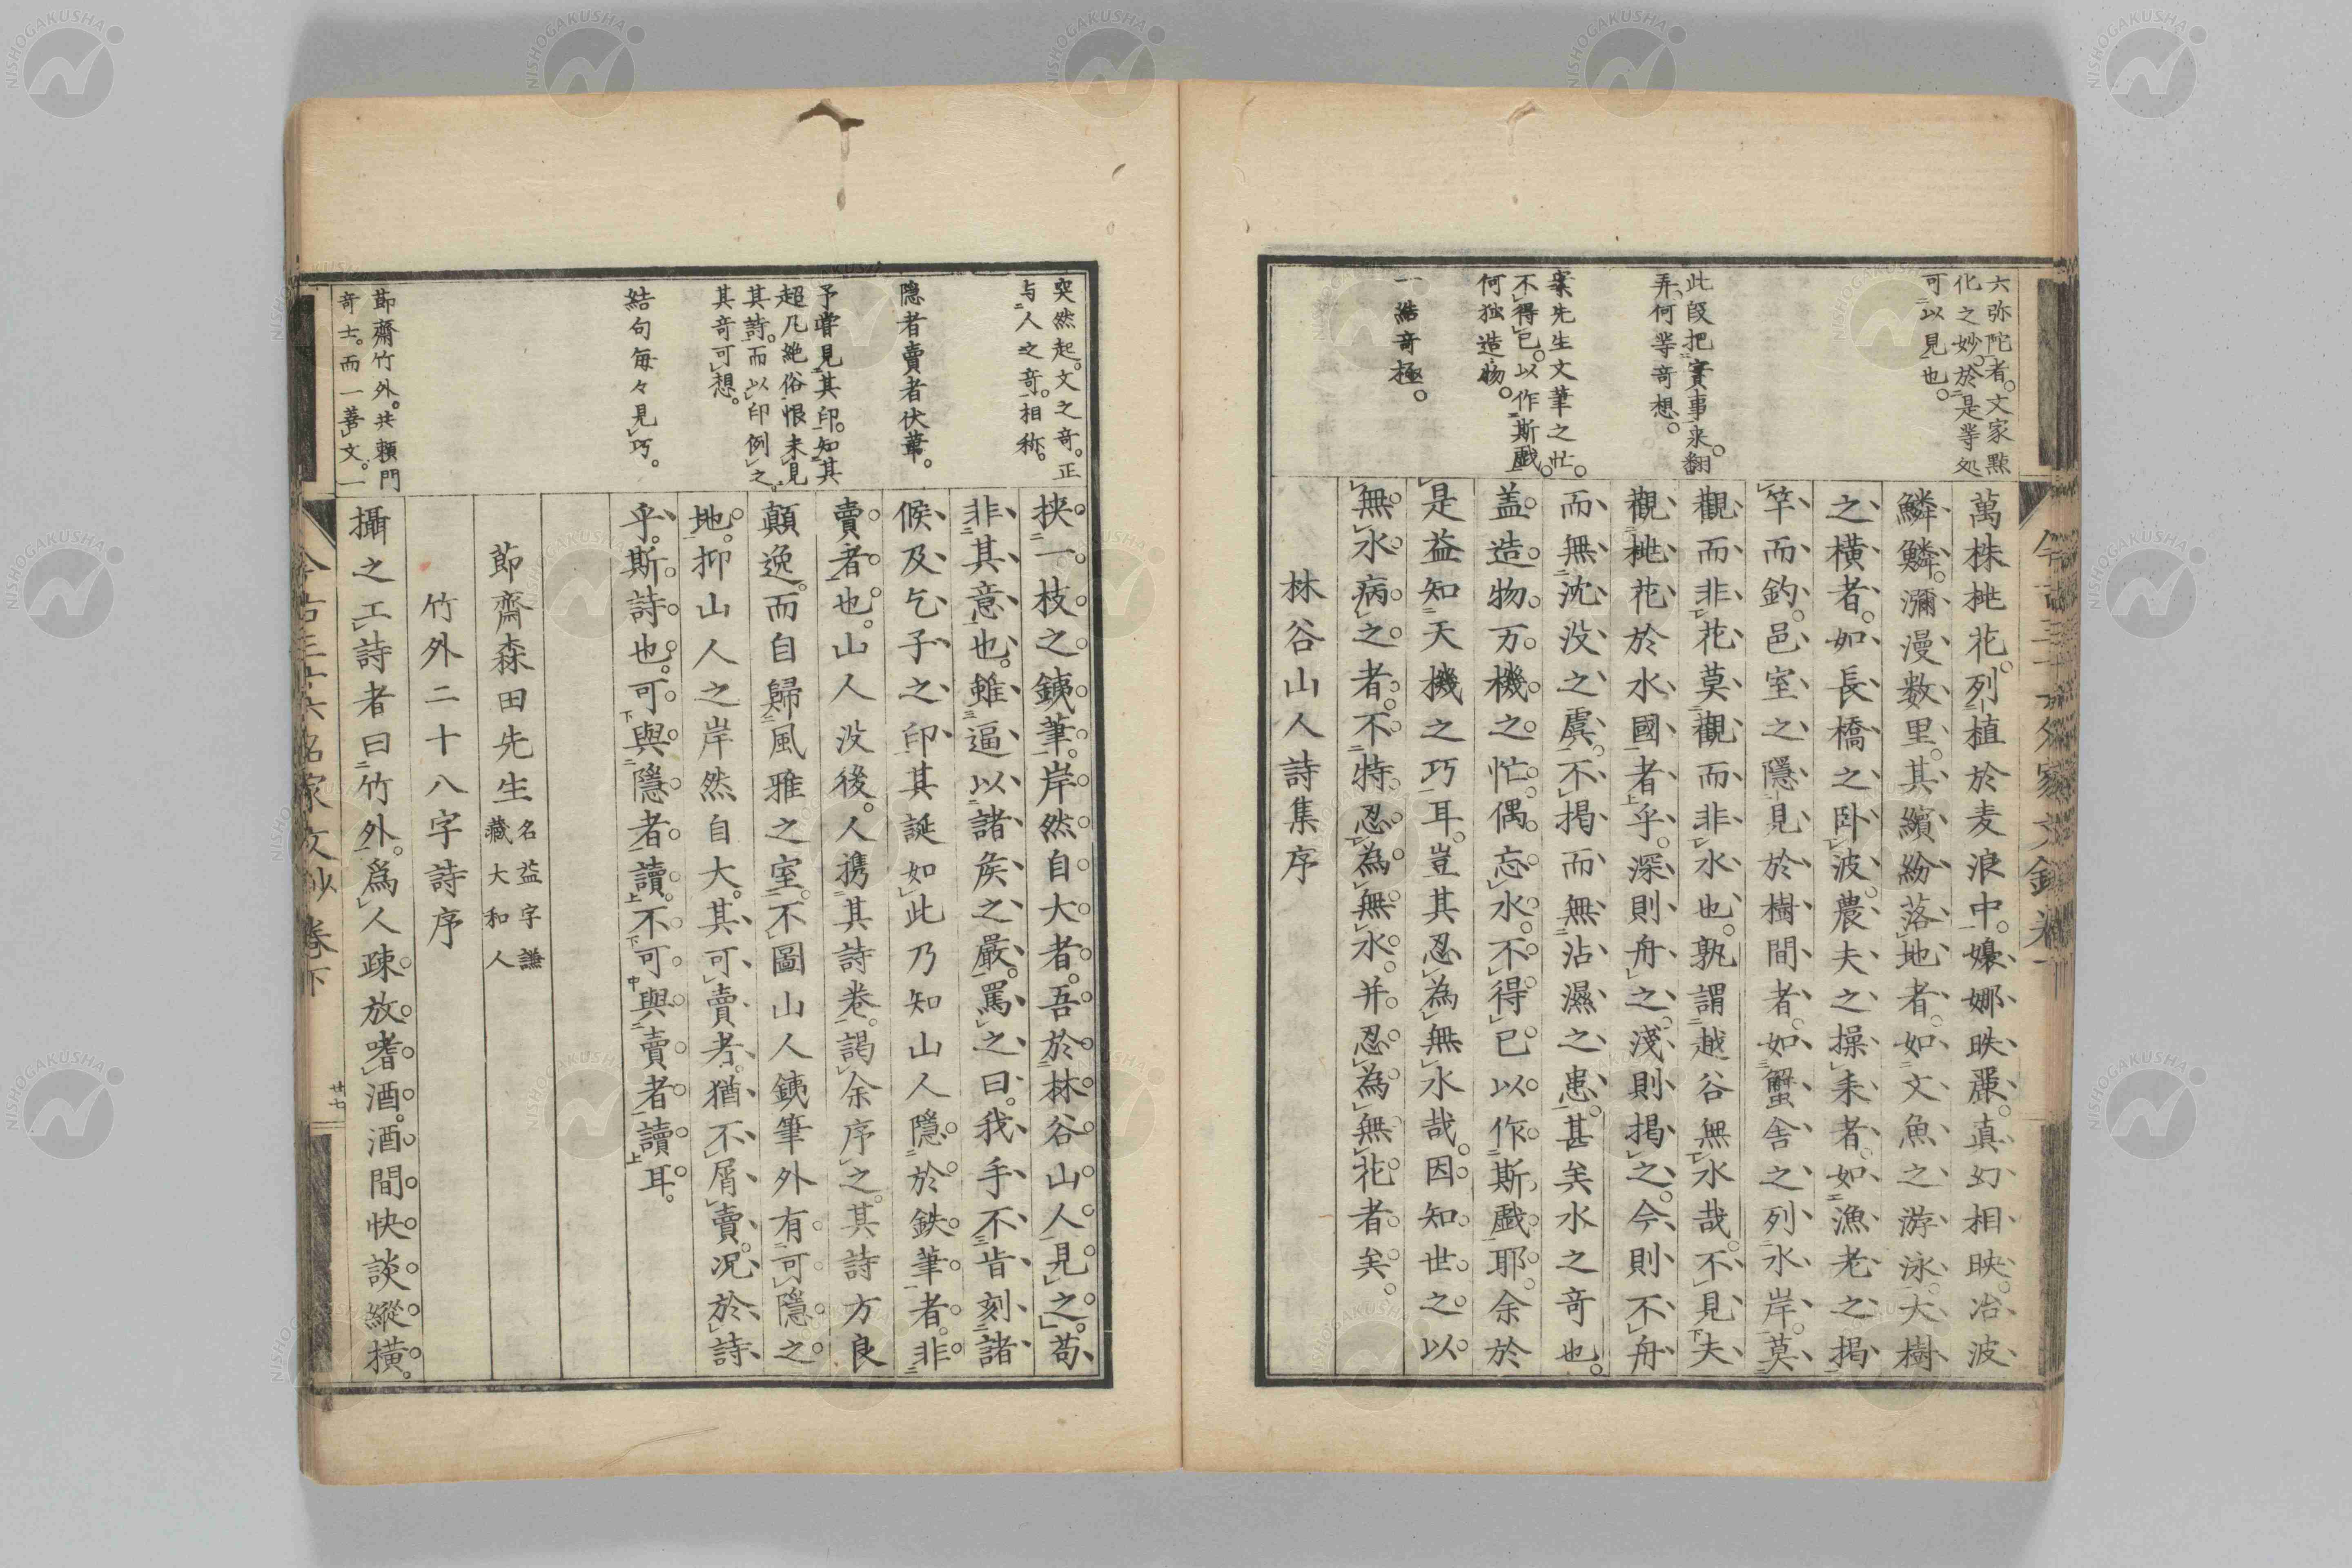 六弥陀者。文家點
化之妙。於是等処
可以見也。
此段把實事来。翻
弄。何等奇想。
案先生文筆之忙。
不得已。以作斯戲。
何独造物。
一結奇極。
萬株桃花。列植於麦浪中。嬝娜映
鱗鱗。瀰漫数里。其繽紛落地者。如文魚之游泳。大樹
之橫者。如長橋之臥波。農夫之操耒者。如漁老之揭
竿而釣。邑室之隱見於樹間者。如蟹舎之列水岸。莫
觀而非花。莫觀而非水也。孰謂越谷無水哉。不見夫
觀桃花於水國者乎。深則舟之。淺則揭之。今則不舟
而無沈没之虞。不揭而無沾濕之患。甚矣水之奇也。
盖造物万機之忙。偶忘水。不得已以作斯戲耶。余於
是益知天機之巧耳。豈其忍為無水哉。因知世之以
無水病之者。不特忍為無水。并忍為無花者矣。
林谷山人詩集序
突然起。文之奇。正
与人之奇。相称。
隐者賣者伏筆。
予嘗見其印。知其
超凡絶俗。恨未見
其詩。而以印例之。
其奇可想。
結句毎々見巧。
節齋竹外。共頼門
奇士。而一善文。一
挾一枝之銕筆。岸然自大者。吾於林谷山人見之。苟
非其意也。雖逼以諸矦之嚴。罵之曰。我手不肯刻諸
候及乞子之印。其誕如此乃知山人隱於鉄筆者。非
賣者也。山人没後。人携其詩卷。謁余序之。其詩方良
顛逸。而自歸風雅之室。不圖山人銕筆外有可隱之
地。抑山人之岸然自大。其可賣者。猶不屑賣。况於詩
乎。斯詩也。可與隱者讀。不可與賣者讀耳。
節齋森田先生
名益字謙
藏大和人
竹外二十八字詩序
攝之工詩者曰竹外。爲人疎放。嗜酒。酒間快談縱橫。
廿七